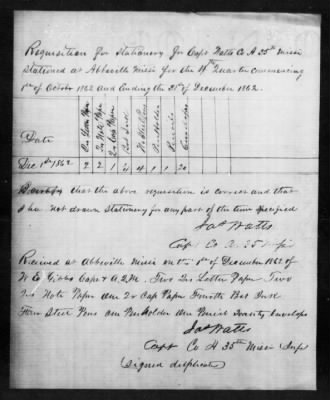 Requisition for Stationery for Capt Watts Co H 35th Missi
Stationed at Abbeville Missi for the 4th Quarter commencing
1st of October 1862 and Ending the 31st of December 1862.
Date
Qrs Letter Paper
Qrs Note Paper
Qrs Cap Paper
Bot Ink
No Steel Pens
Pen Holder
Pencils
Envelopes
Dec 1st 1862 2 2 1 4 1 1 20
I certify that the above requisition is correct and that
I have not drawn Stationery for any part of the time specified
Jas Watts
Capt Co H 35
Recived at Abbeville Missi on the 1st of December 1862 of
W E Gibbs Capt & A.Q.M. Two Qrs Letter Paper Two
Qrs Note Paper one Qr Cap Paper Bot Ink
Four Steel Pens one Penholder one Pencil Twenty Envelops
Jas Watts
Capt Co H 35th Missi
(Signed duplicate)